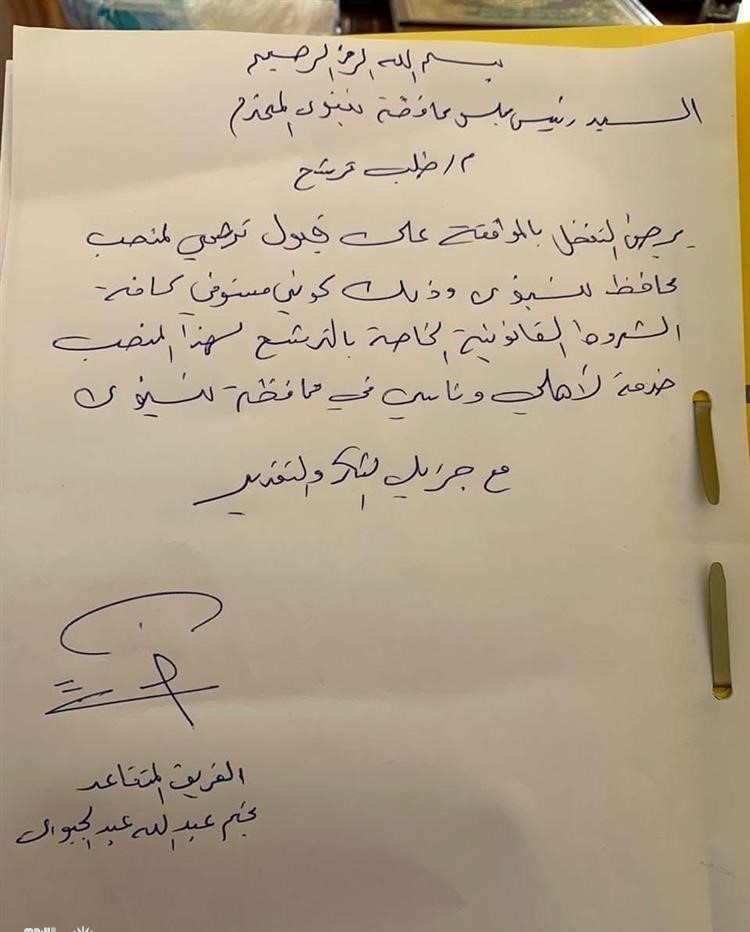 بسم الله الرحمن الرحيم
السيد رئيس مجلس محافظة نينوى المحترم
م/ طلب ترشح
يرجى التفضل بالموافقة على قبول ترشحي لمنصب
محافظ نينوى وذلك كوني مستوفي كافة
الشروط القانونية الخاصة بالترشح لهذا المنصب
خدمة لأهلي وناسي في محافظة نينوى
مع جزيل الشكر والتقدير
الفريق المتقاعد
نجم عبد الله عبد الجبوري